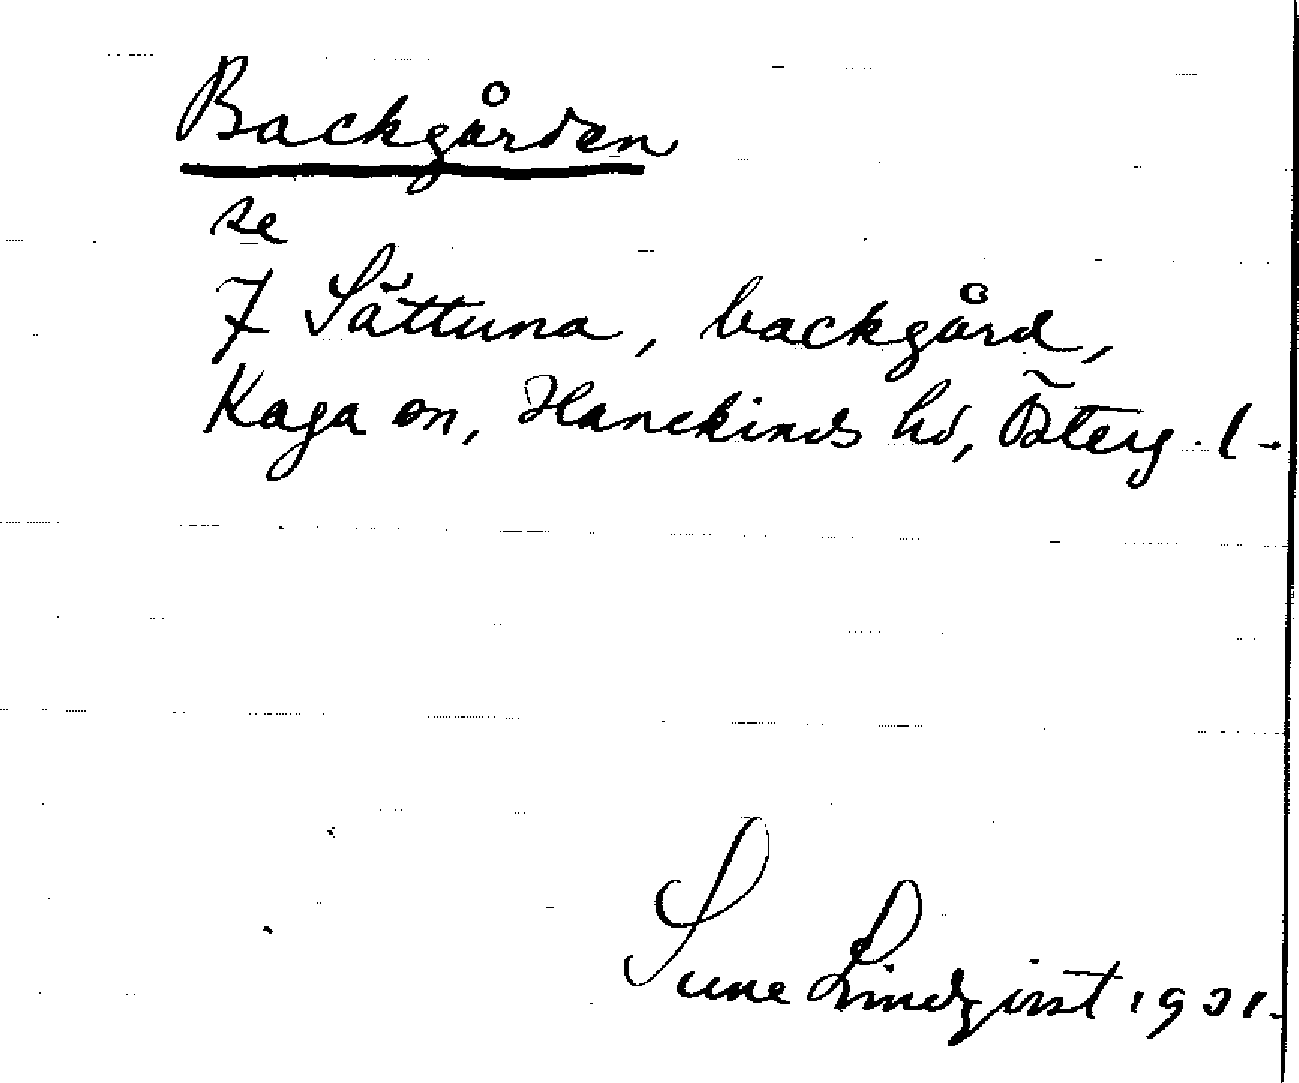 Backgården
se
7 Sättuna, backgård,
Kaga sn, Hanekinds hd, Österg. l.
Sune Lindqvist 1921.